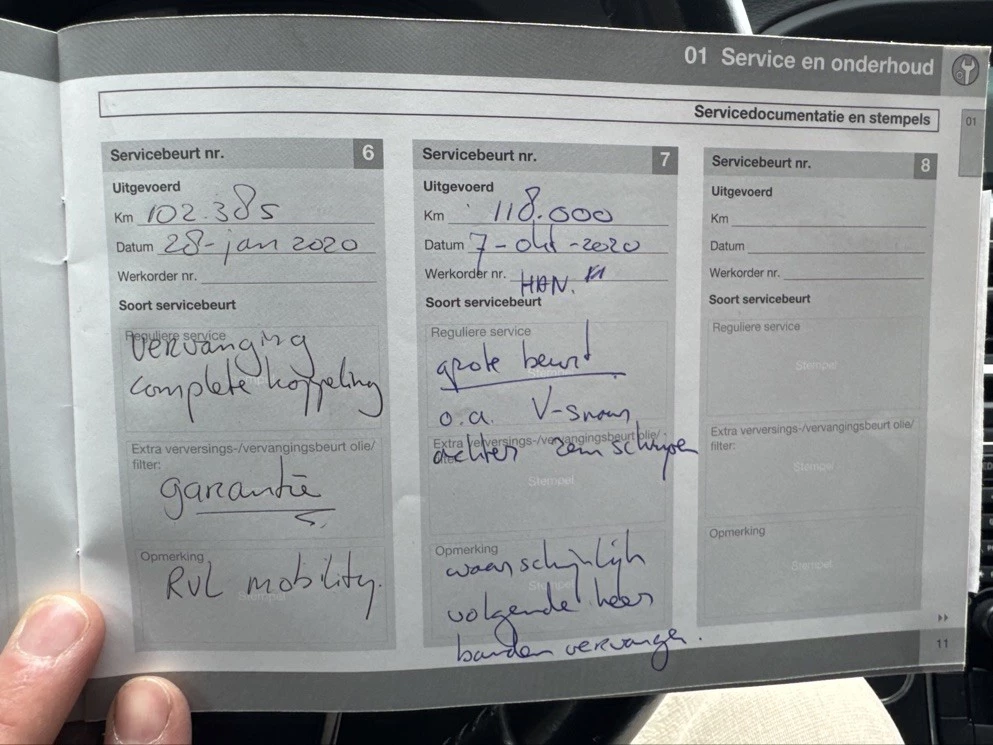 01 Service en onderhoud
Servicedocumentatie en stempels
01
Servicebeurt nr. 6
Uitgevoerd
Km 102.385
Datum 28-jan 2020
Werkorder nr.
Soort servicebeurt
Reguliere service
vervanging
complete koppeling
Extra verversings-/vervangingsbeurt olie/
filter:
garantie
Opmerking
RVL mobility.
Servicebeurt nr. 7
Uitgevoerd
Km 118.000
Datum 7-okt-2020
Werkorder nr. HAN.
Soort servicebeurt
Reguliere service
grote beurt
o.a. V-snaar,
Extra verversings-/vervangingsbeurt olie/
achter remschijven
Stempel
Opmerking
waarschijnlijk
volgende keer
banden vervangen.
Servicebeurt nr. 8
Uitgevoerd
Km
Datum
Werkorder nr.
Soort servicebeurt
Reguliere service
Stempel
Extra verversings-/vervangingsbeurt olie/
filter:
Stempel
Opmerking
Stempel
11